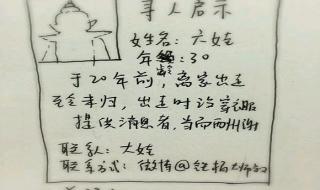 寻人启示
女生名：六娃
年龄：30
于20年前，离家出走
至今未归，出走时没穿衣服
提供消息者，当面酬谢
联系人：大娃
联系方式：微博@